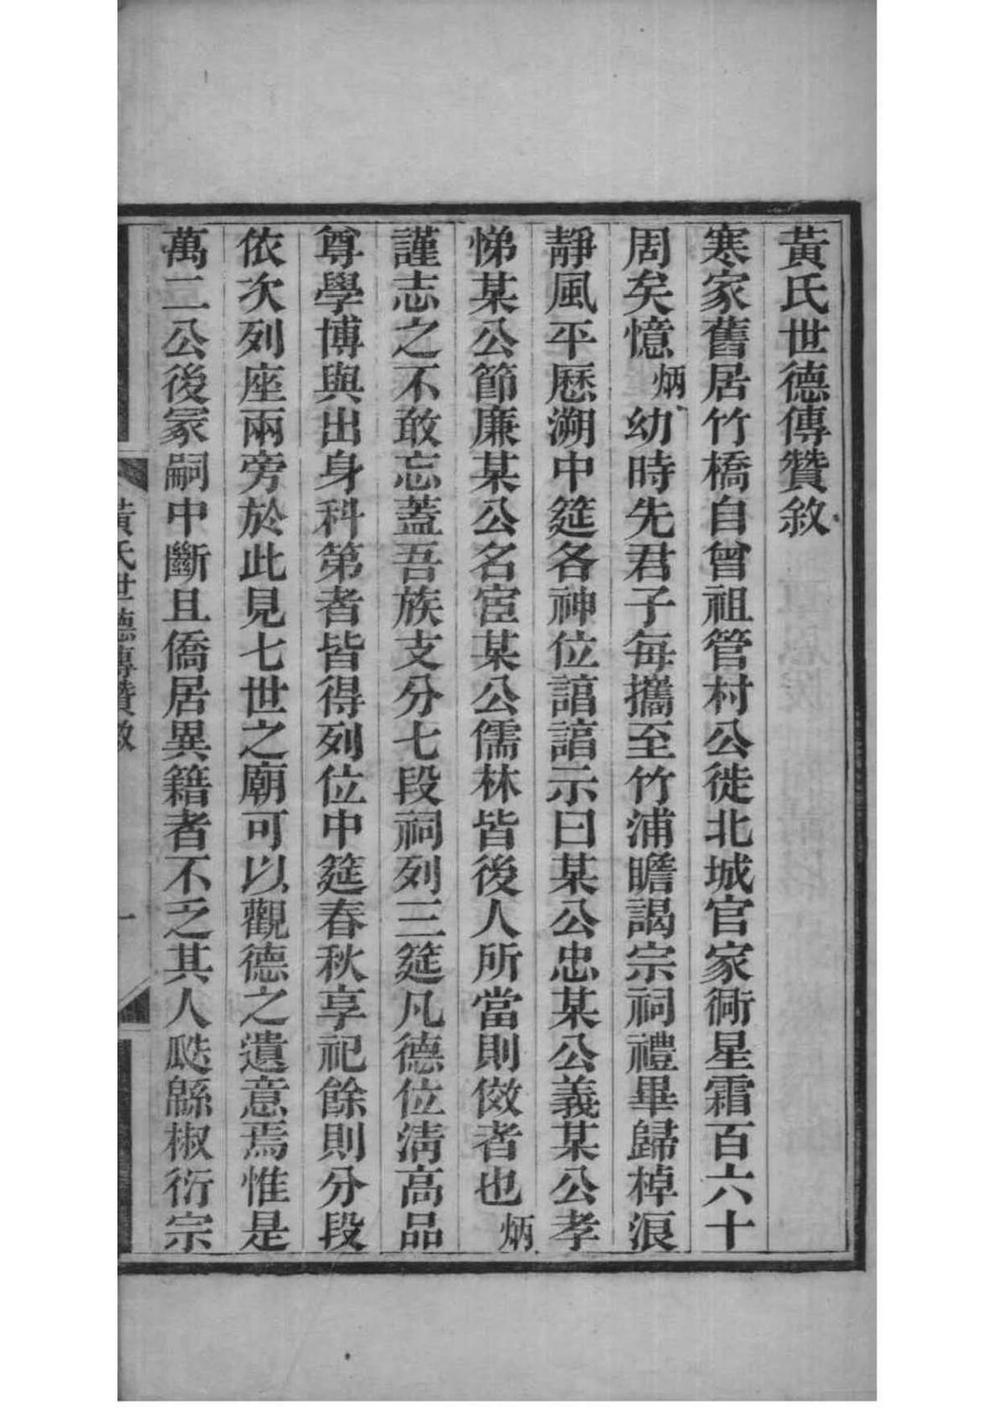 黃氏世德傳贊敘
寒家舊居竹橋自曾祖管村公徙北城官家衕星霜百六十
周矣憶炳幼時先君子每攜至竹浦瞻謁宗祠禮畢歸棹浪
靜風平歷溯中筵各神位諳諳示曰某公忠某公義某公孝
悌某公節廉某公名宦某公儒林皆後人所當則傚者也炳
謹志之不敢忘蓋吾族支分七段祠列三筵凡德位淸高品
尊學博與出身科第者皆得列位中筵春秋享祀餘則分段
依次列座兩旁於此見七世之廟可以觀德之遺意焉惟是
萬二公後冢嗣中斷且僑居異籍者不乏其人瓞緜椒衍宗
黃氏世德傳贊敘
一